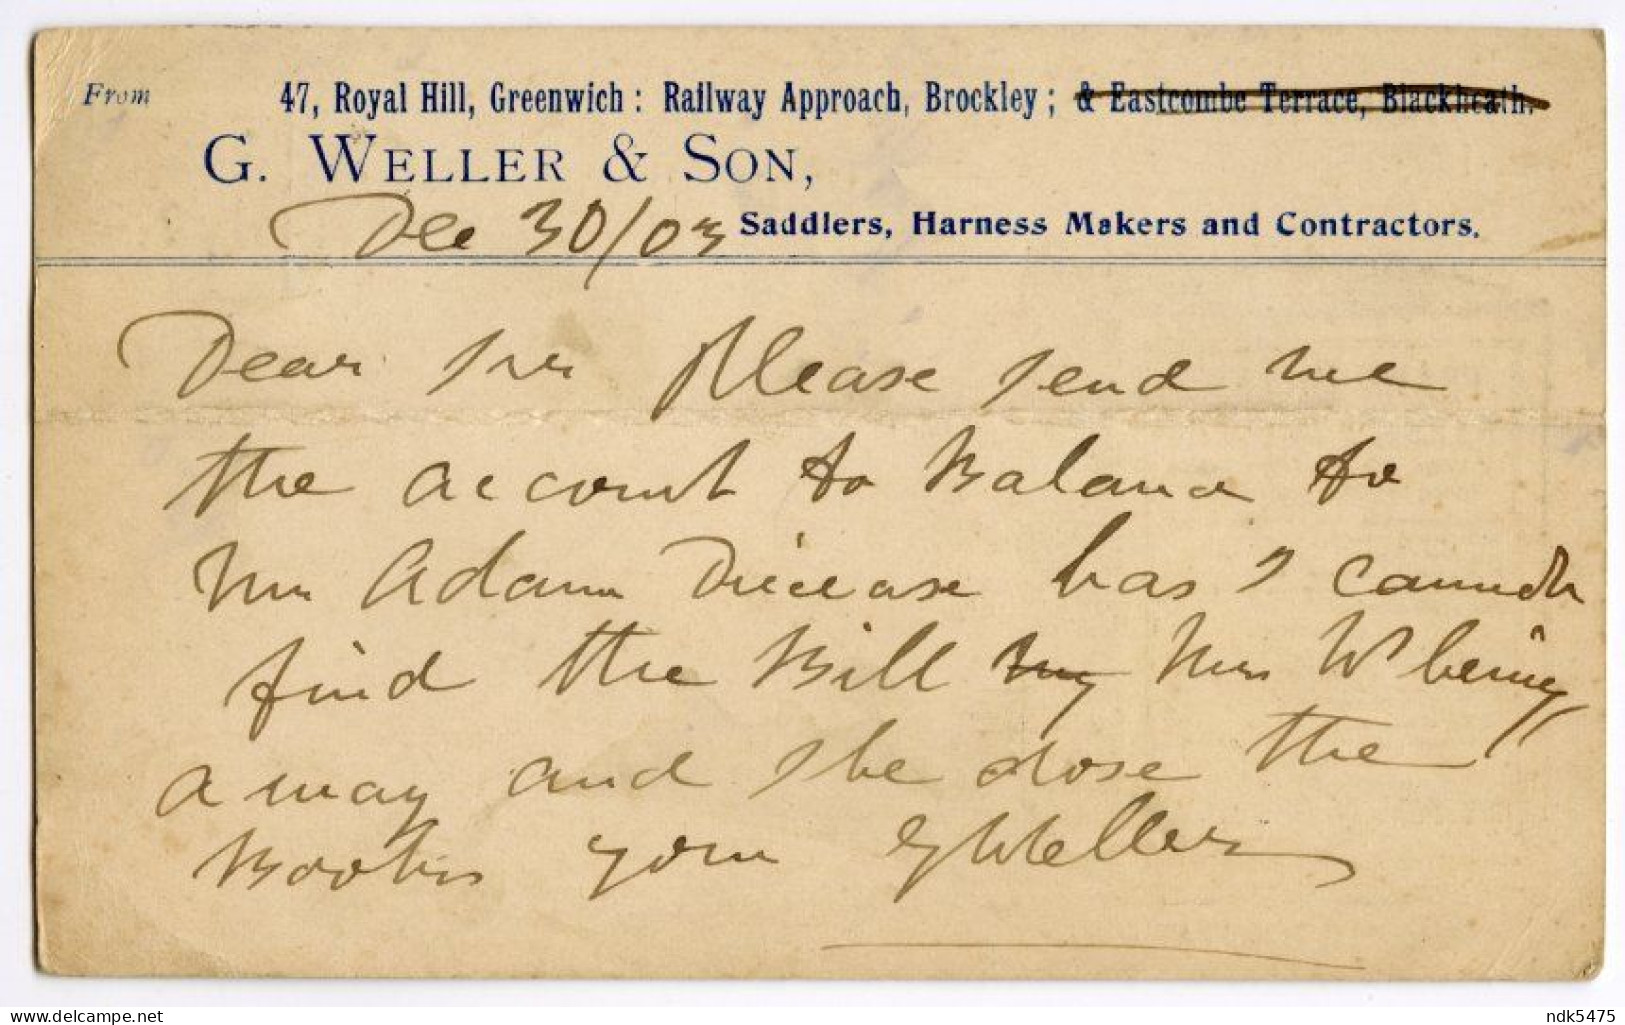 From 47, Royal Hill, Greenwich: Railway Approach, Brockley; & Eastcombe Terrace, Blackheath.
G. WELLER & SON,
Dec 30/03 Saddlers, Harness Makers and Contractors.
Dear Sir Please send me
the account to Balance to
Mr Adam Diecease has I cannot
find the Bill my Mrs W being
away and she dose the
Books your G Weller
delcampe.net
ndk5475